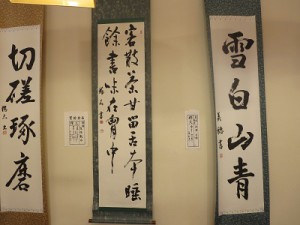 雪白山青
客散茶甘留舌本睡
餘書味在胷中
切磋琢磨